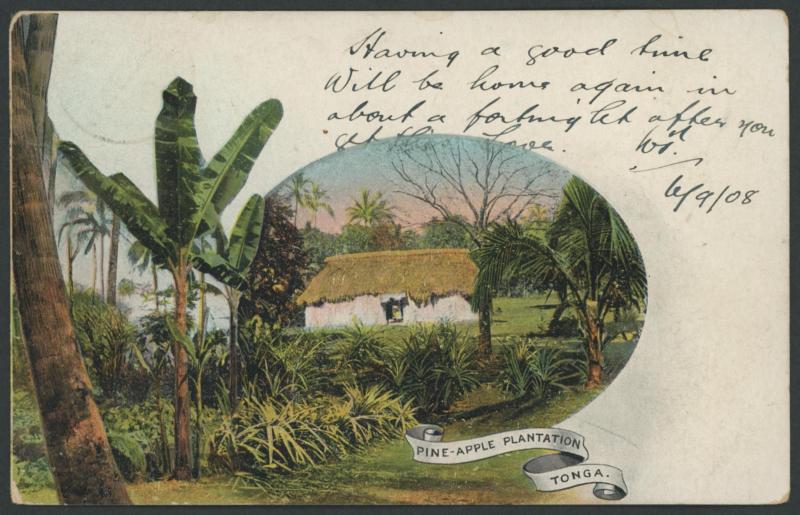 Having a good time
Will be home again in
about a fortnight after you
get this Love. Wt.
6/9/08
PINE-APPLE PLANTATION
TONGA.